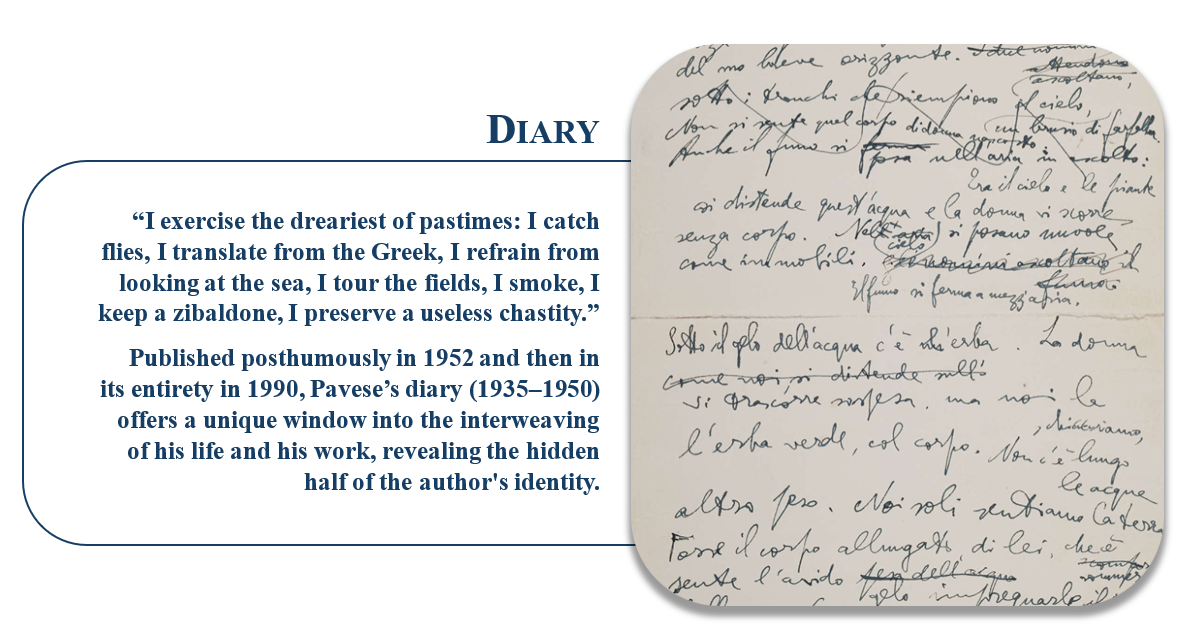 DIARY
“I exercise the dreariest of pastimes: I catch
flies, I translate from the Greek, I refrain from
looking at the sea, I tour the fields, I smoke, I
keep a zibaldone, I preserve a useless chastity.”
Published posthumously in 1952 and then in
its entirety in 1990, Pavese’s diary (1935–1950)
offers a unique window into the interweaving
of his life and his work, revealing the hidden
half of the author's identity.
del suo breve orizzonte.
ascoltano,
sotto i tronchi che riempiono il cielo,
Non si sente quel corpo di donna nascosto un brusio di farfalla.
Anche il fumo si posa nell'aria in ascolto:
Era il cielo e le piante
si distende quest'acqua e la donna vi scorre
senza corpo. Nel cielo si posano nuvole
come immobili. il
Il fumo si ferma a mezz'aria.
Sotto il gelo dell'acqua c'è l'erba. La donna
come noi si distende sull'
vi trascorre sospesa, ma noi la
l'erba verde, col corpo. Non c'è lungo
le acque
altro peso. Noi soli sentiamo la terra
Forse il corpo allungato di lei, che è
sente l'avido peso dell'acqua
gelo